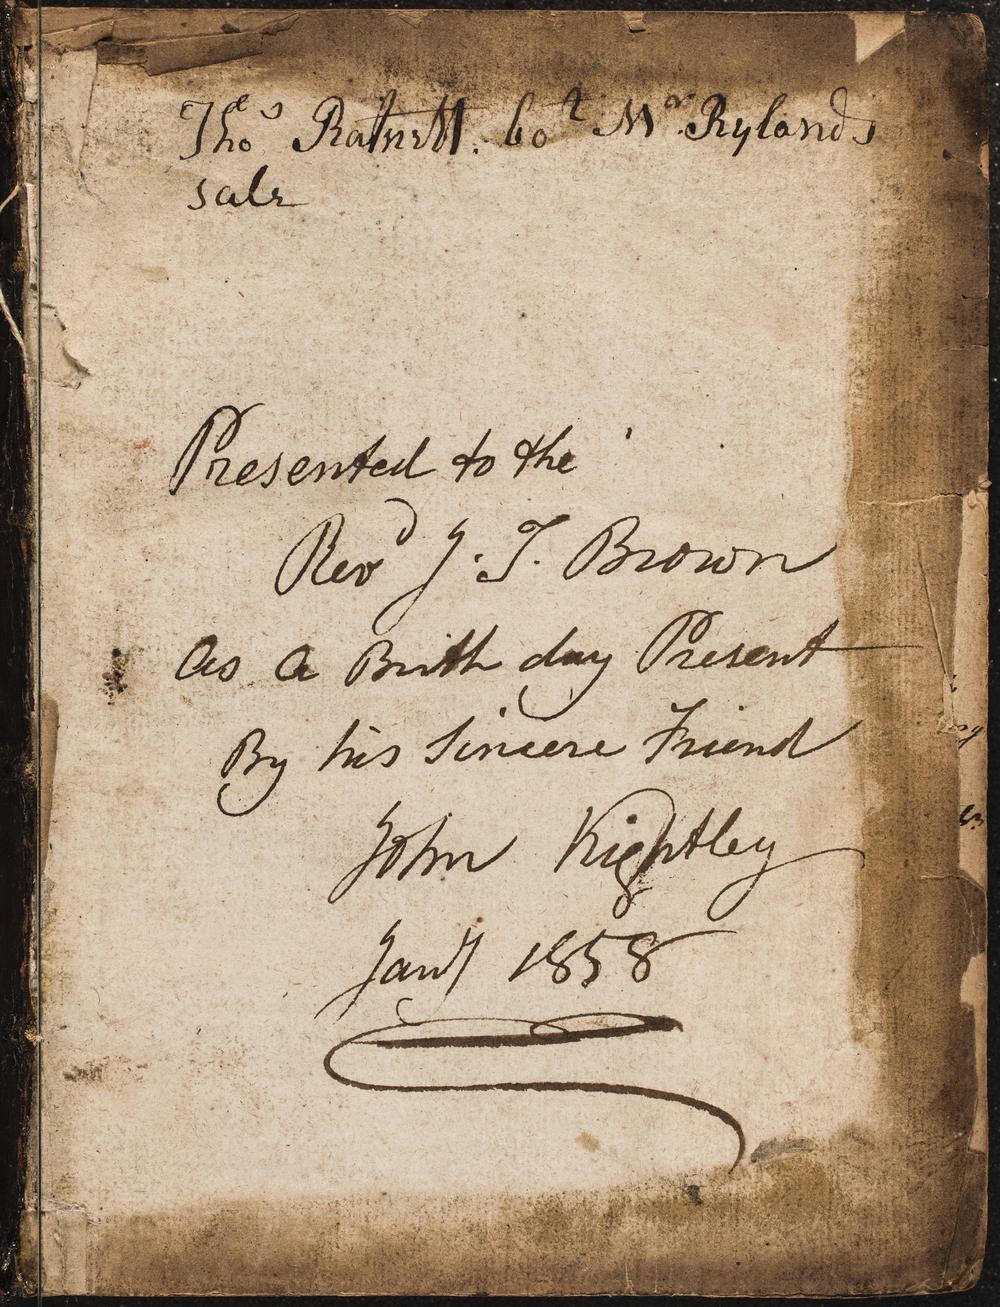 Tho.s Ratnett. bo.t Mr. Rylands
sale
Presented to the
Revd J. T. Brown
as a Birth day Present
By his Sincere Friend
John Kightley
Jany 1858